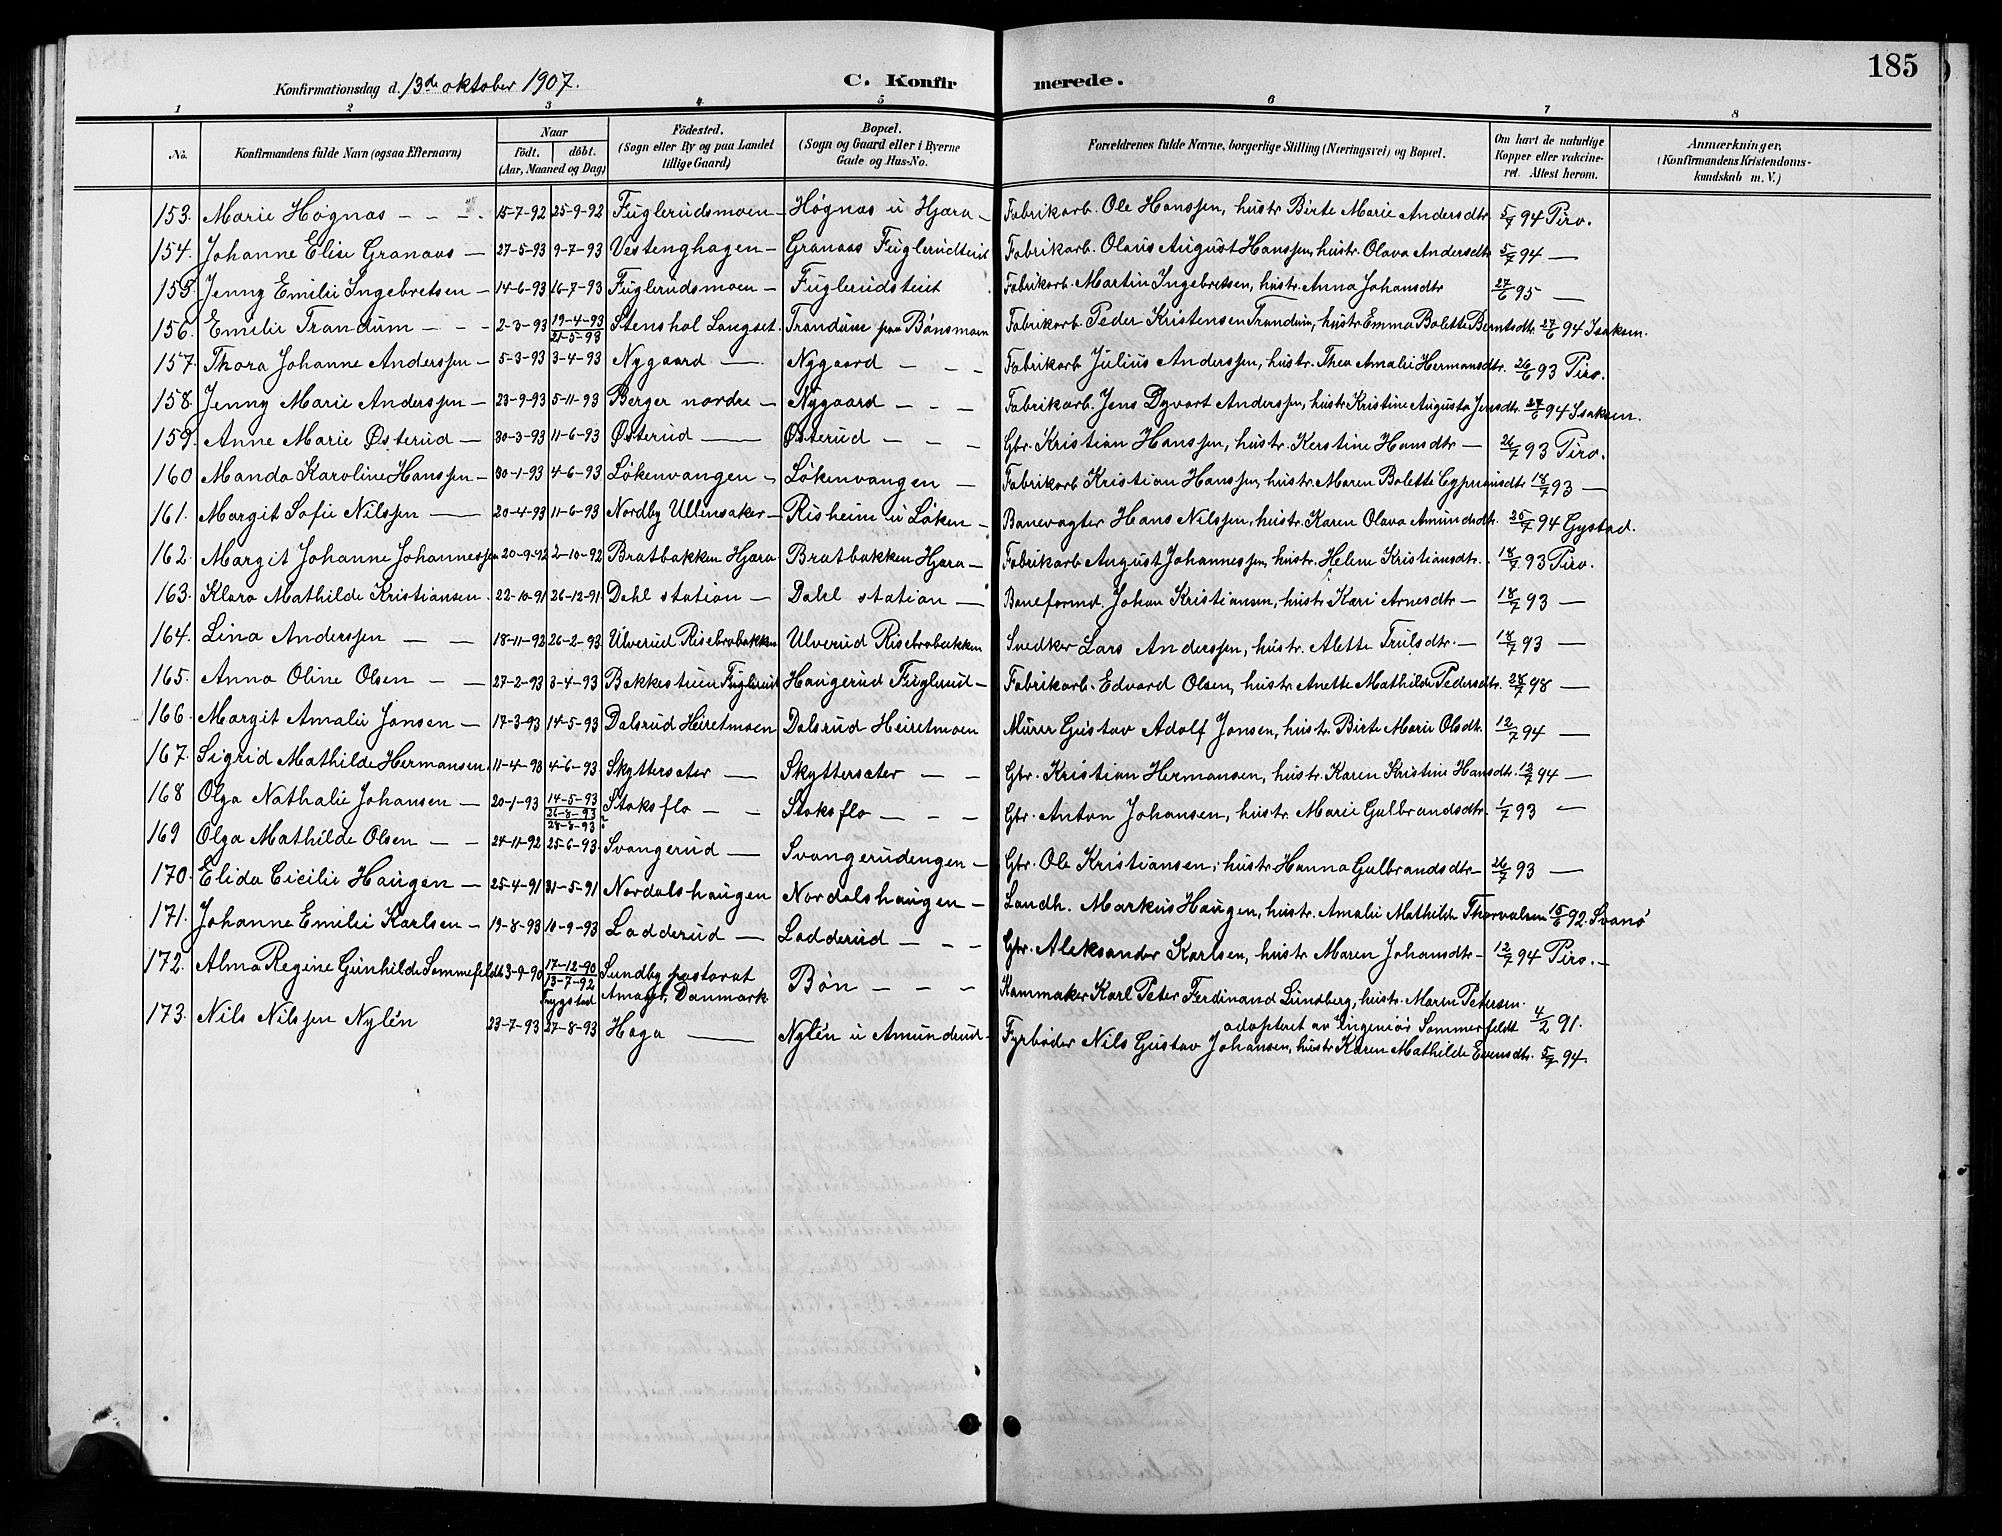 185
Konfirmationsdag d. 13de oktober 1907.
C. Konfirmerede.
1 2 3 4 5 6 7 8
No. Konfirmandens fulde Navn (ogsaa Efternavn) Naar født. døbt. (Aar, Maaned og Dag) Fødested. (Sogn eller By og paa Landet tillige Gaard) Bopæl. (Sogn og Gaard eller i Byerne Gade og Hus-No. Forældrenes fulde Navne, borgerlige Stilling (Næringsvei) og Bopæl. Om havt de naturlige Kopper eller vakcineret. Attest herom. Anmærkninger, (Konfirmandens Kristendomskundskab m. V.)
153. Marie Høgnas - - - 15-7-92 25-9-92 Fuglerudsmoen - Høgnas u Hjera - Fabrikarb. Ole Hanssen, hustr. Birte Marie Andersdtr. 5/7 94 Piro.
154. Johanne Elise Granaas - 27-5-93 9-7-93 Vestenghagen - Granaas Fuglerudteit Fabrikarb. Olaus August Hanssen, hustr. Olava Andersdtr 5/7 94 —
155. Jenny Emilie Ingebretsen - 14-6-93 16-7-93 Fuglerudsmoen - Fuglerudsteit Fabrikarb. Martin Ingebretsen, hustr. Anna Johansdtr 27/6 95 —
156. Emilie Trandum - - - 2-3-93 19-4-93 21-5-93 Stenshol Langset. Trandum paa Bønsmoen Fabrikarb. Peder Kristensen Trandum, hustr. Emma Bolette Berntsdtr. 27/6 94 Isaksen.
157. Thora Johanne Anderssen - 5-3-93 3-4-93 Nygaard — Nygaard - - - Fabrikarb Julius Anderssen, hustr. Thea Amalie Hermansdtr. 26/6 93 Piro.
158. Jenny Marie Anderssen - 23-9-93 5-11-93 Berger nordre - Nygaard - - - Fabrikarb. Jens Dyvart Anderssen, hustr Kristine Augusta Jensdtr. 27/6 94 Isaksen.
159. Anne Marie Østerud - 30-3-93 11-6-93 Østerud — Østerud - - - Gbr. Kristian Hanssen, hustr. Kerstine Hansdtr - 26/7 93 Piro.
160 Manda Karoline Hanssen - 30-1-93 4-6-93 Løkenvangen - Løkenvangen - Fabrikarb Kristian Hanssen, hustr. Maren Bolette Cypriansdtr 18/7 93 —
161. Margit Sofie Nilssen — 20-4-93 11-6-93 Nordby Ullensaker - Risheim u Løken - Banevogter Hans Nilssen, hustr. Karen Olava Amundsdtr. 25/7 94 Gystad.
162. Margit Johanne Johannessen 20-9-92 2-10-92 Bratbakken Hjera Bratbakken Hjera - Fabrikarb August Johannessen, hustr. Helene Kristiansdtr. 18/7 93 Piro.
163. Klara Mathilde Kristiansen. 22-10-91 26-12-91 Dahl station - Dahl station - Baneformd. Johan Kristiansen, hustr Kari Arnesdtr - 18/7 93 —
164. Lina Anderssen - - 18-11-92 26-2-93 Ulverud Risebrobakken Ulverud Risebrobakken Snedker Lars Anderssen, hustr. Alette Trulsdtr. - 18/7 93 —
165. Anna Oline Olsen - - 27-2-93 3-4-93 Bakkestuen Fuglerud Haugerud Fuglerud - Fabrikarb. Edvard Olsen, hustr Anette Mathilde Pedersdtr. 28/7 98 —
166. Margit Amalie Jansen - 17-3-93 14-5-93 Dalsrud Heiretmoen Dalsrud Heiretmoen Murer Gustav Adolf Jansen, hustr. Birte Marie Olsdtr. 12/7 94 —
167. Sigrid Mathilde Hermansen. 11-4-93 4-6-93 Skyttersæter — Skyttersæter - - Gbr. Kristian Hermansen, hustr. Karen Kristine Hansdtr. 12/7 94 —
168 Olga Nathalie Johansen - 20-1-93 14-5-93 26-8-93 Stoksflo - - Stoksflo - - - Gbr. Anton Johansen, hustr. Marie Gulbrandsdtr. 1/7 93 —
28-8-93
169 Olga Mathilde Olsen - - 24-11-92 25-6-93 Svangerud — Svangerudengen - Gbr. Ole Kristiansen, hustr. Hanna Gulbrandsdtr - 26/7 93 —
170. Elida Cicilie Haugen - 25-4-91 31-5-91 Nordalshaugen Nordalshaugen - Landh. Markus Haugen, hustr. Amalie Mathilde Thorvalsen 15/6 92. Svanø
171. Johanne Emilie Karlsen - 19-8-93 10-9-93 Ladderud — Ladderud - - - Gbr. Aleksander Karlsen, hustr Maren Johansdtr - 12/7 94 Piro. -
172. Alma Regine Gunhilde Sommefeldt 3-9-90 17-12-90 13-7-92 Trygstad Sundby pastorat Amager, Danmark Bøn - - - Kammaker Karl Peter Ferdinand Lundberg, hustr. Maren Petersen.
adopteret av Ingeniør Sommerfeldt 4/2 91.
173. Nils Nilssen Nylén 23-7-93 27-8-93 Haga — Nylén u Amundrud - Fyrbøder Nils Gustav Johansen, hustr Karen Mathilde Evensdtr. 5/7 94.